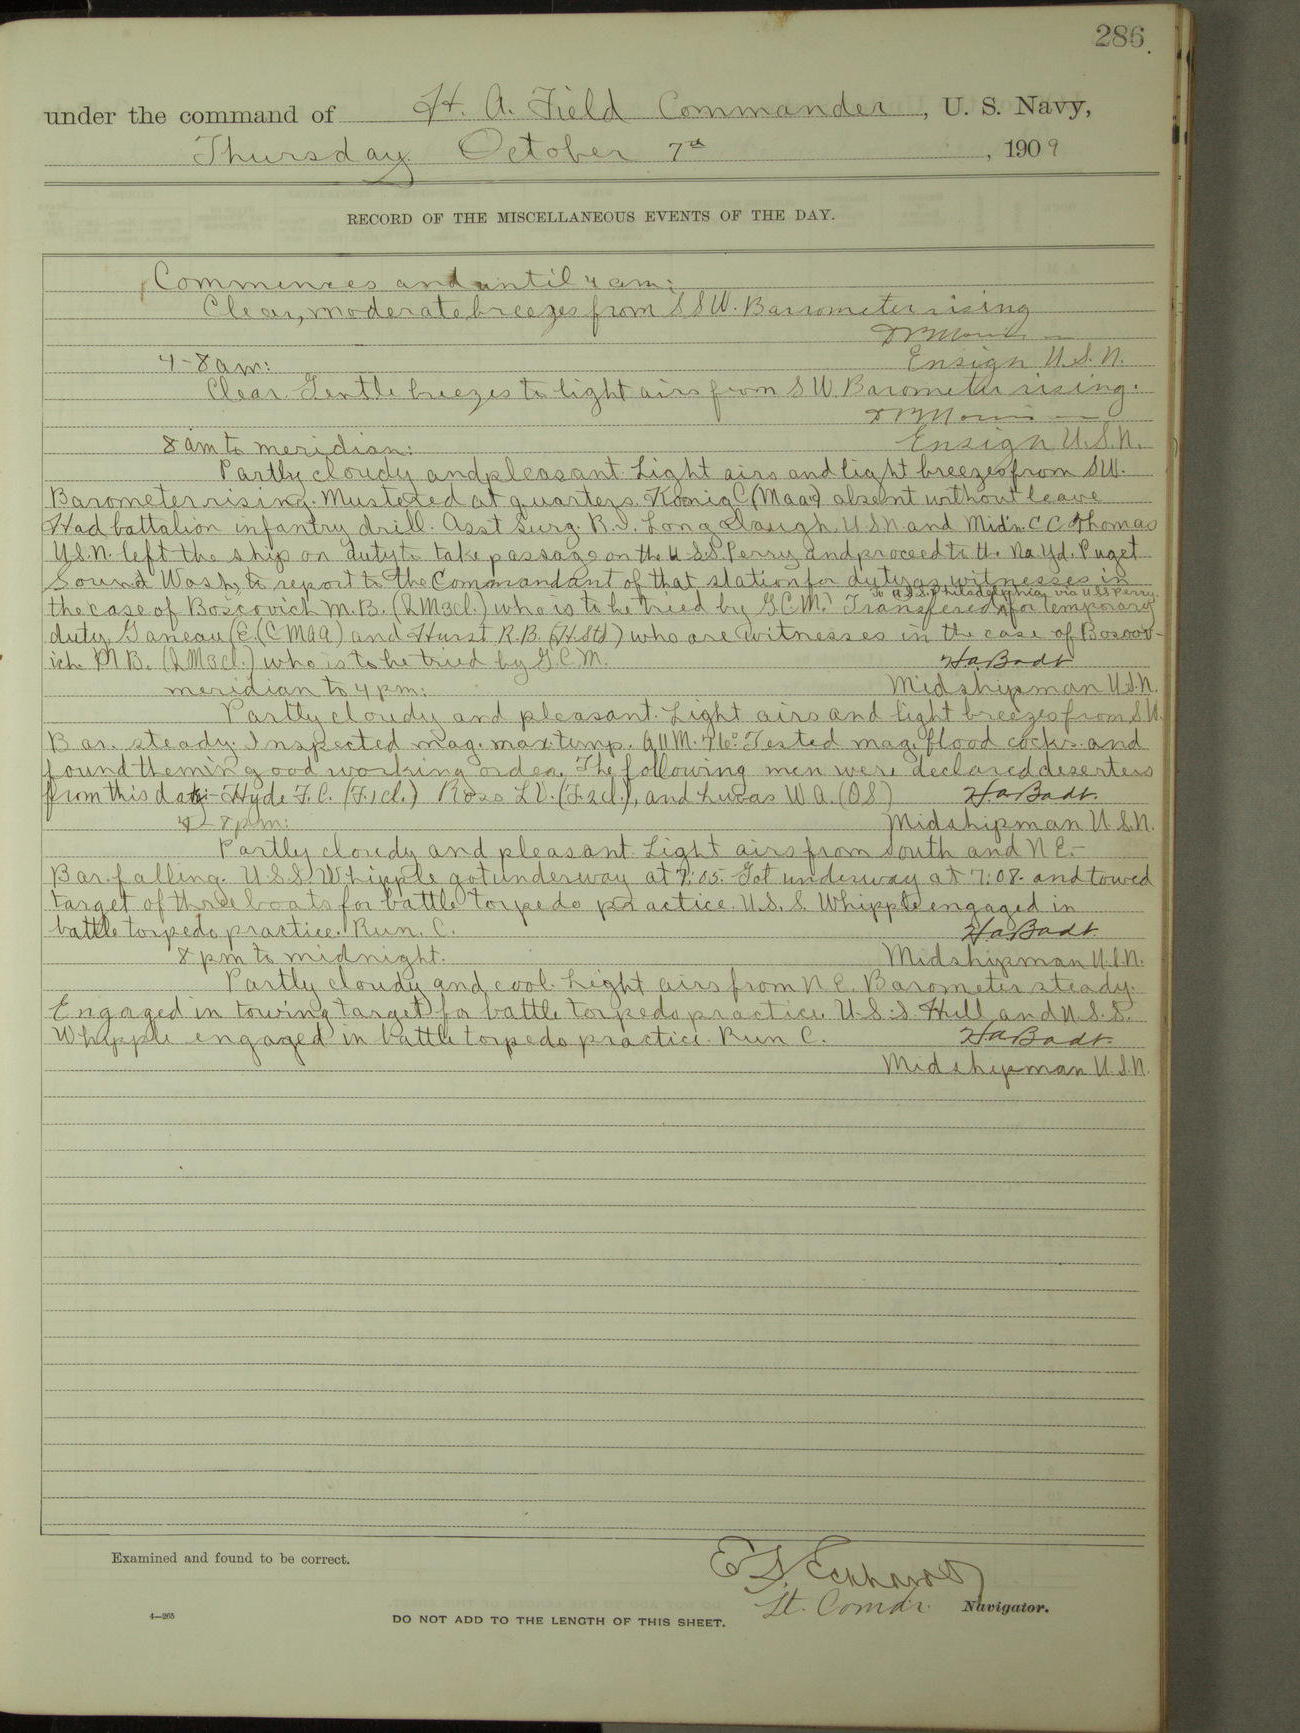 286.
under the command of H. A. Field Commander, U. S. Navy,
Thursday October 7th, 1909
RECORD OF THE MISCELLANEOUS EVENTS OF THE DAY.
Commences and until 4 am:
Clear, moderate breezes from SSW. Barrometer rising
Ensign U.S.N.
4-8 am:
Clear. Gentle breezes to light airs from SW. Barometer rising.
Ensign U.S.N.
8 am to meridian:
Partly cloudy and pleasant. Light airs and light breezes from SW.
Barometer rising. Mustered at quarters. Konig C (Maa) absent without leave
Had battalion infantry drill. Asst Surg. R. Longabaugh U.S.N. and Midn. C.C. Thomas
U.S.N. left the ship on duty to take passage on the U.S.S Perry and proceed to the Na Yd. Puget
Sound Wash, to report to the Commandant of that station for duty as witnesses in
to U.S.S. Philadelphia via USS Perry.
the case of Boscovich M.B. (SM3cl.) who is to be tried by G.C.M. Transfered for temporary
duty Ganeau E (CMAA) and Hurst R.B. (H.Std) who are witnesses in the case of Boscov-
ich M B. (SM3cl.) who is to be tried by G.C.M. Ha Badt
meridian to 4 pm: Midshipman U.S.N.
Partly cloudy and pleasant. Light airs and light breezes from S.W.
Bar. steady. Inspected mag. max temp. 76° Tested mag. flood cocks and
found them in good working order. The following men were declared deserters
from this date:- Hyde F.C. (F.1cl.) Ross L.V. (F.2cl.), and Lucas W A. (OS) Ha Badt.
4-8 pm: Midshipman U.S.N.
Partly cloudy and pleasant. Light airs from South and N E.-
Bar. falling. U.S.S. Whipple got underway at 7:05. Got underway at 7:08. and towed
target of three boats for battle torpedo practice. U.S.S. Whipple engaged in
battle torpedo practice. Run. C. Ha Badt.
8 pm to midnight. Midshipman U.S.N.
Partly cloudy and cool. Light airs from N E. Barometer steady.
Engaged in towing target for battle torpedo practice. U.S.S Hull and U.S.S.
Whipple engaged in battle torpedo practice. Run C. Ha Badt.
Midshipman U.S.N.
Examined and found to be correct.
Eckhardt
Lt. Comdr. Navigator.
4-265
DO NOT ADD TO THE LENGTH OF THIS SHEET.